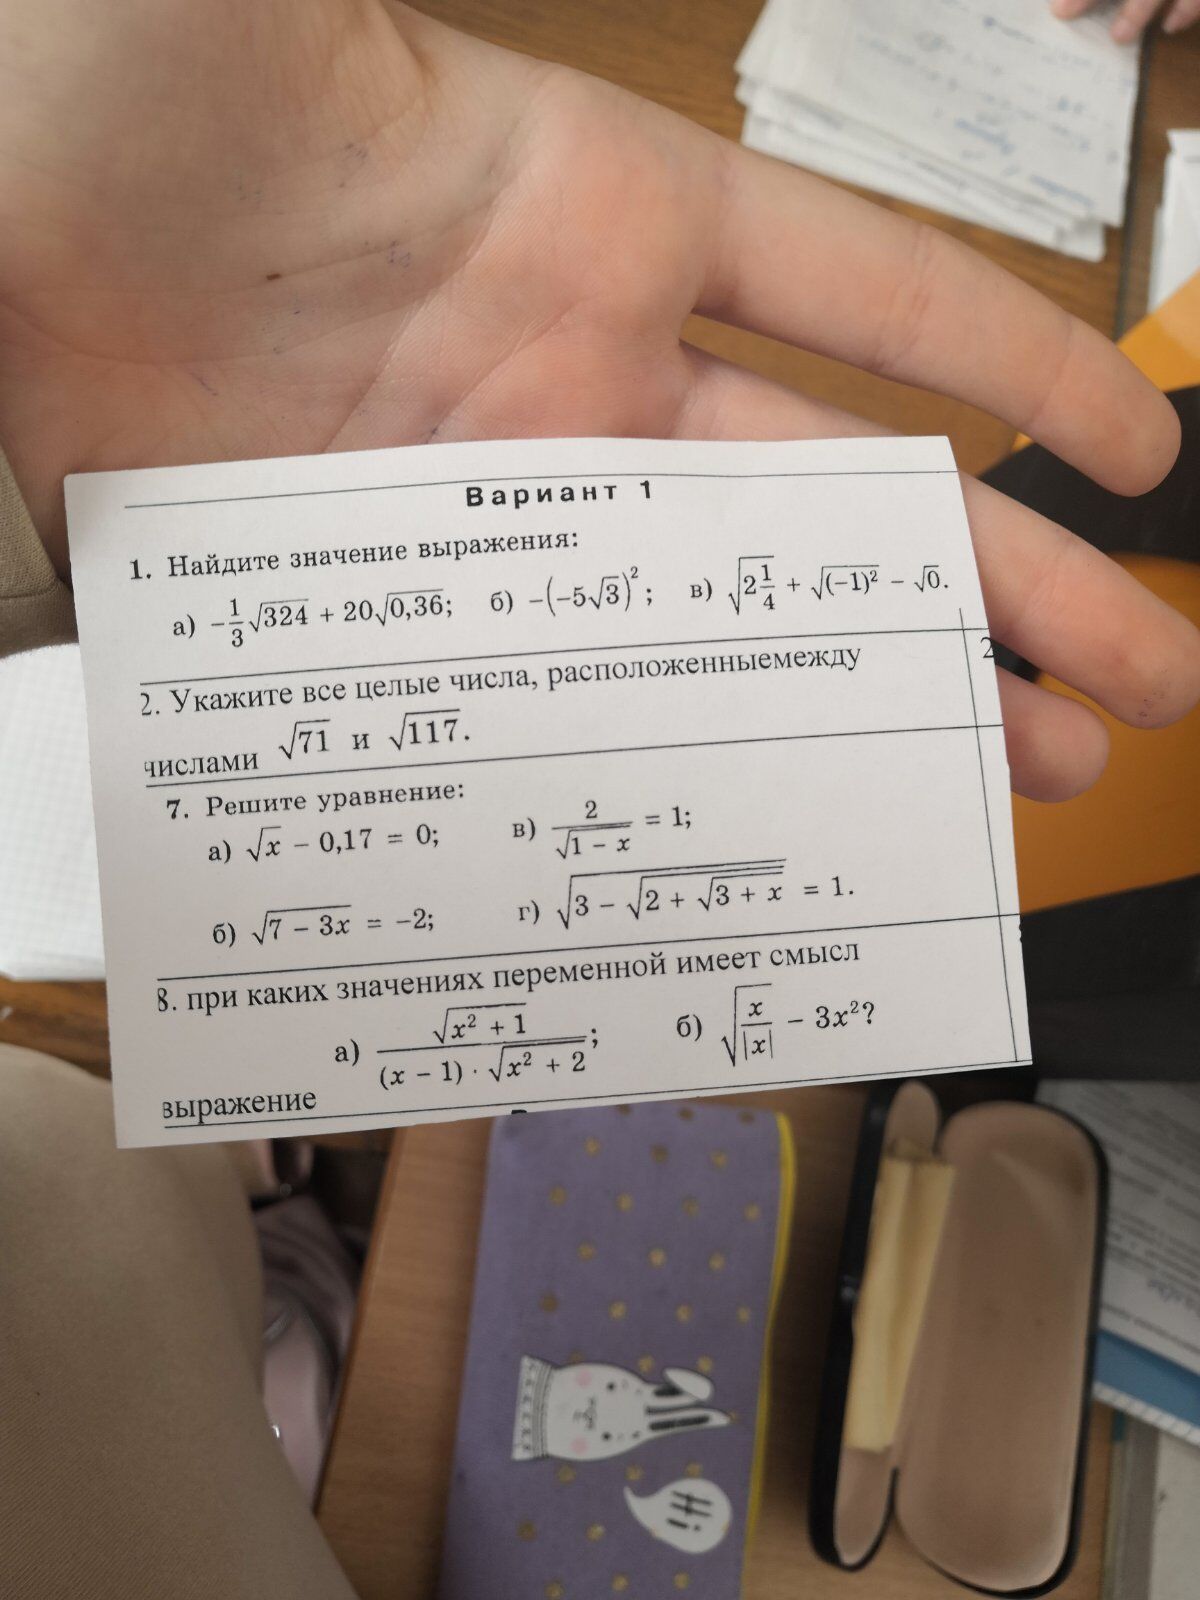 Вариант 1
1. Найдите значение выражения:
а) −1/3√324 + 20√0,36; б) −(−5√3)²; в) √(2 1/4) + √(−1)² − √0.
2. Укажите все целые числа, расположенныемежду
2
числами √71 и √117.
7. Решите уравнение:
а) √x − 0,17 = 0; в) 2/√(1 − x) = 1;
б) √(7 − 3x) = −2; г) √(3 − √(2 + √(3 + x))) = 1.
8. при каких значениях переменной имеет смысл
а) √(x² + 1)/((x − 1) · √(x² + 2)); б) √(x/|x|) − 3x²?
выражение
Hi